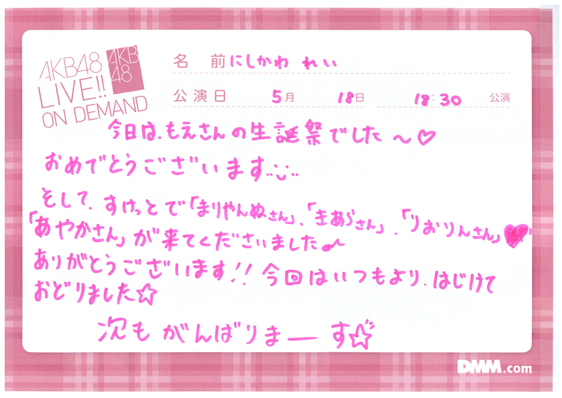 AKB48
LIVE!!
ON DEMAND
AKB
48
名 前 にしかわ れい
公演日 5月 18日 18:30 公演
今日は、もえさんの生誕祭でした〜♡
おめでとうございます
そして、すけっとで「まりやんぬさん」、「きあらさん」、「りおりんさん」♥
「あやかさん」が来てくださいました♪
ありがとうございます!! 今回はいつもより、はじけて
おどりました☆
次もがんばりまーす☆
DMM.com